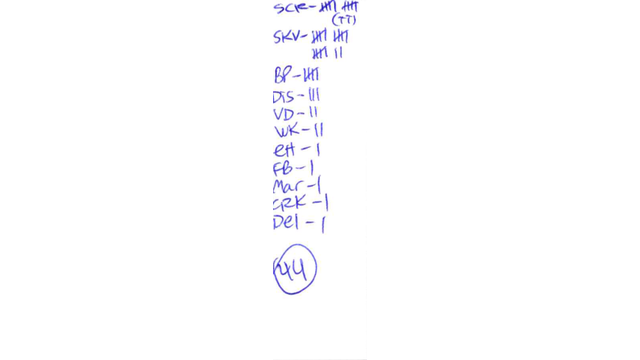 SCR - 卌 卌
(TT)
SKV - 卌 卌
卌 ||
BP - 卌
Dis - |||
VD - ||
WK - ||
eH - |
FB - |
Mar - |
CRK - |
Del - |
44